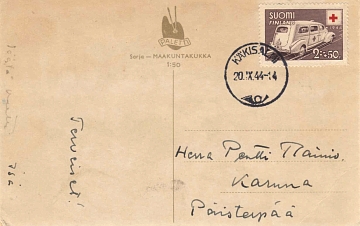 PALETTI
Sarja — MAAKUNTAKUKKA
1:50
SUOMI
FINLAND
2+-50
KÄKISALMI
20.IX.44-14
Terveiset!
Isä
Herra Pentti
Karuna
Päisterpää